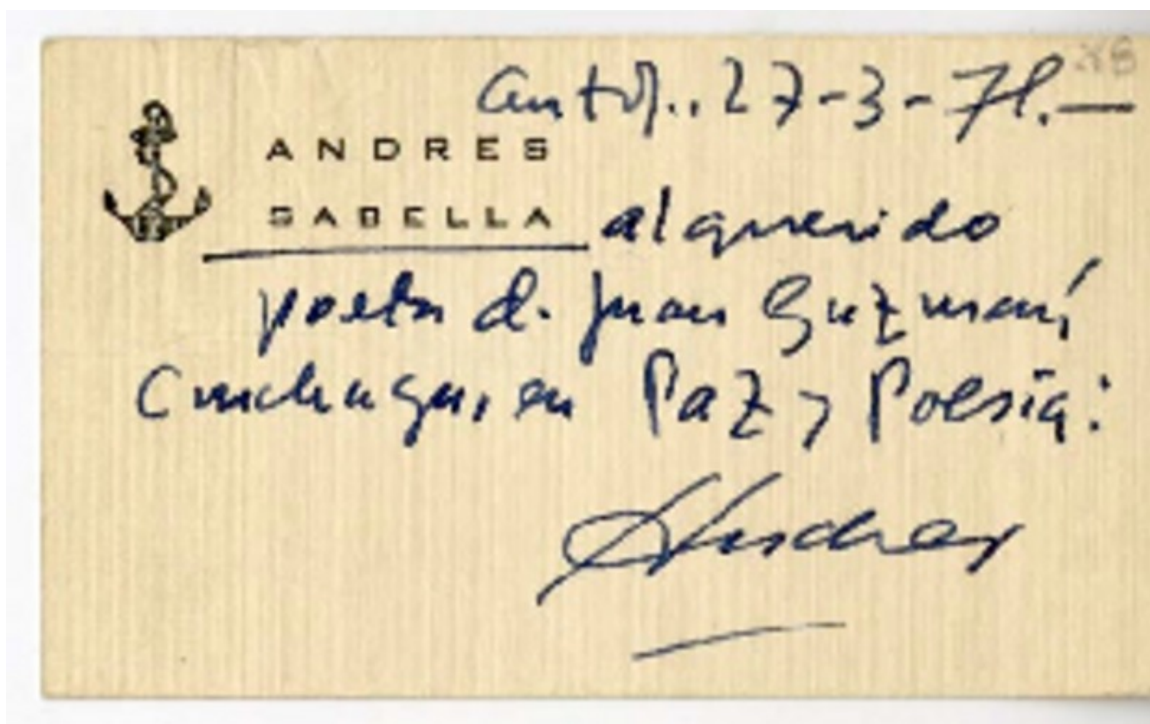 Antof., 27-3-71.—
ANDRES
SABELLA al querido
poeta d. Juan Guzmán
Cruchaga, en Paz y Poesía:
Andres